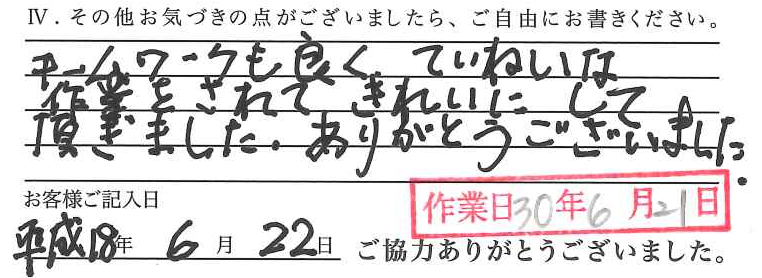 Ⅳ．その他お気づきの点がございましたら、ご自由にお書きください。
チームワークも良く、ていねいな
作業をされて きれいに して
頂ぎました. ありがとうございました.
お客様ご記入日
作業日30年6月21日
平成18年 6月 22日 ご協力ありがとうございました。